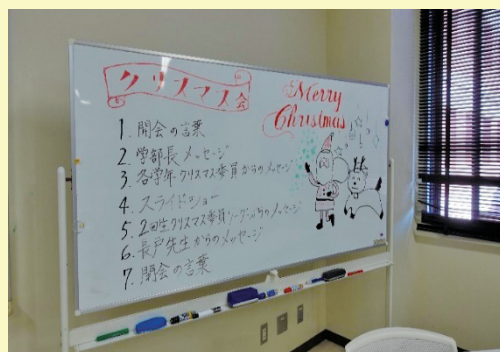 クリスマス会
Merry
Christmas
1. 開会の言葉
2. 学部長メッセージ
3. 各学年クリスマス委員からのメッセージ
4. スライドショー
5. 2回生クリスマス委員リーダーからのメッセージ
6. 長戸先生からのメッセージ
7. 閉会の言葉